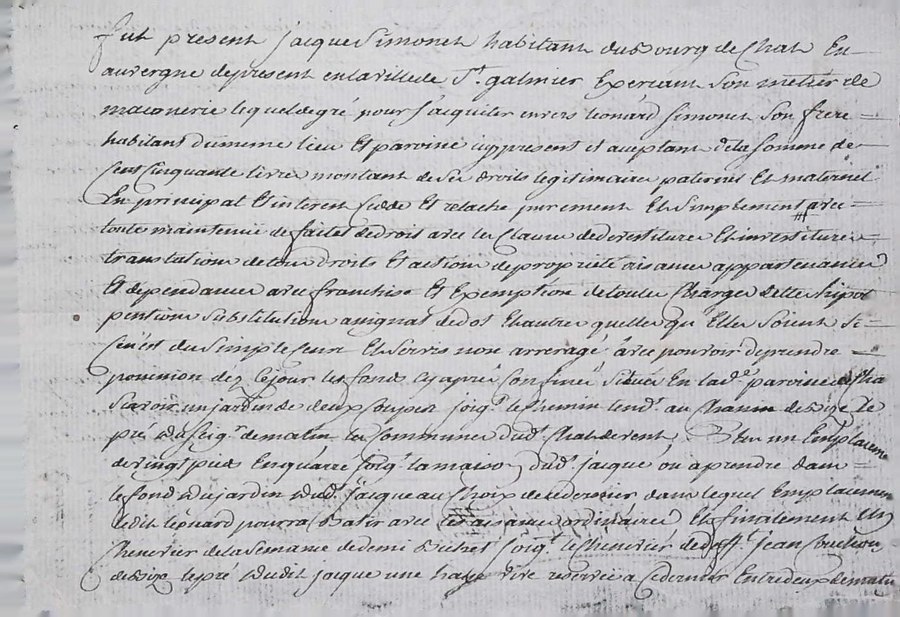 fut present jacque Simonet habitant du Bourg de Chat En
auvergne de present en la ville de St. galmier Exercant Son metier de
maconerie lequel de gré pour s'aquiter envers leonard Simonet Son frere
habitant du meme lieu Et paroisse icy present et aceptant de la Somme de
Cent Cinquante livre montant de Se droits legitimaire paternel Et maternel
En principal Et interest Cedde Et relache purement Et Simplement avec
toute maintenue de fait et de droit avec les Clause de devestiture Et investiture
translation de tous droits Et action de propriété aisance appartenance
Et dependance avec franchise Et Exemption de toute Charge dette hipot
pention Substitution asignat de dot Et autre quelle qu'Elle Soient Si
Ce n'est du Simple Cens Et Servis non arreragé avec pouvoir de prendre
possession dez Ce jour les fond Cy aprés Confiné Situés En lad.e paroisse de Cha
Scavoir un jardin de deux Coupez joig.t le Chemin tend.t au Chemin de Bize le
pré du Seig.r de matin les Commune dud.t Chat de vent Et un Emplaceme
de vingt pieds En quarré joig.t la maison dud.t jacque où a prendre dans
le fond du jardin dud.t jacque au Choix de ce dernier dans lequel Emplacemen
ledit léonard pourra Batir avec les aisance ordinaire Et finalement Un
Chenevier de la Semance de demi Bichet joig.t le Chenevier de deff.t Jean
de Bize le pré dudit jacque une haye vive reservée a Ce dernier Entre deux de matin